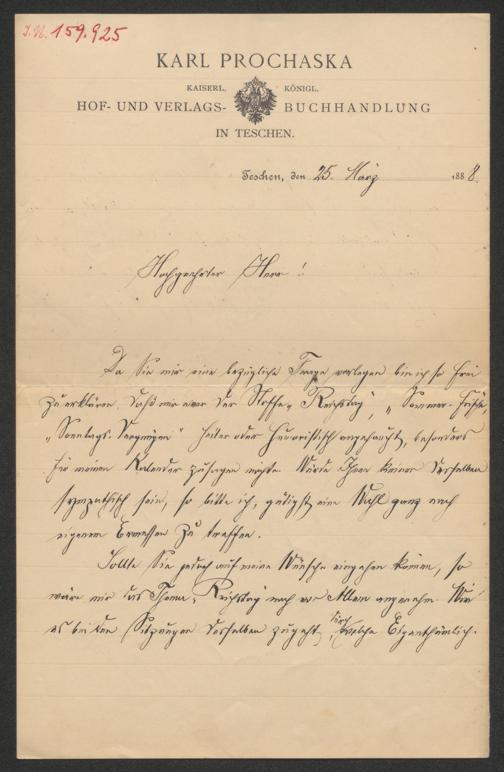 J.N. 159.925
KARL PROCHASKA
KAISERL. KÖNIGL.
HOF- UND VERLAGS- BUCHHANDLUNG
IN TESCHEN.
Teschen, den 25. März 1888.
Hochgeehrter Herr!
Da Sie mir eine bezügliche Frage vorlegen bin ich so frei
zu erklären, daß mir einer der Stoffe „Reichstag", „Sommer-Frische,
„Sonntags-Vergnügen" heiter oder humoristisch angehaucht, besonders
für meinen Kalender zusagen möchte. Würde Ihnen keiner derselben
sympathisch sein, so bitte ich, gütigst eine Wahl ganz nach
eigenem Ermessen zu treffen.
Sollte Sie jedoch auf meine Wünsche eingehen können, so
wäre mir das Thema „Reichstag" noch vor Allem angenehm. Wie
es bei den Sitzungen desselben zugeht, durch welche Eigenthümlich-